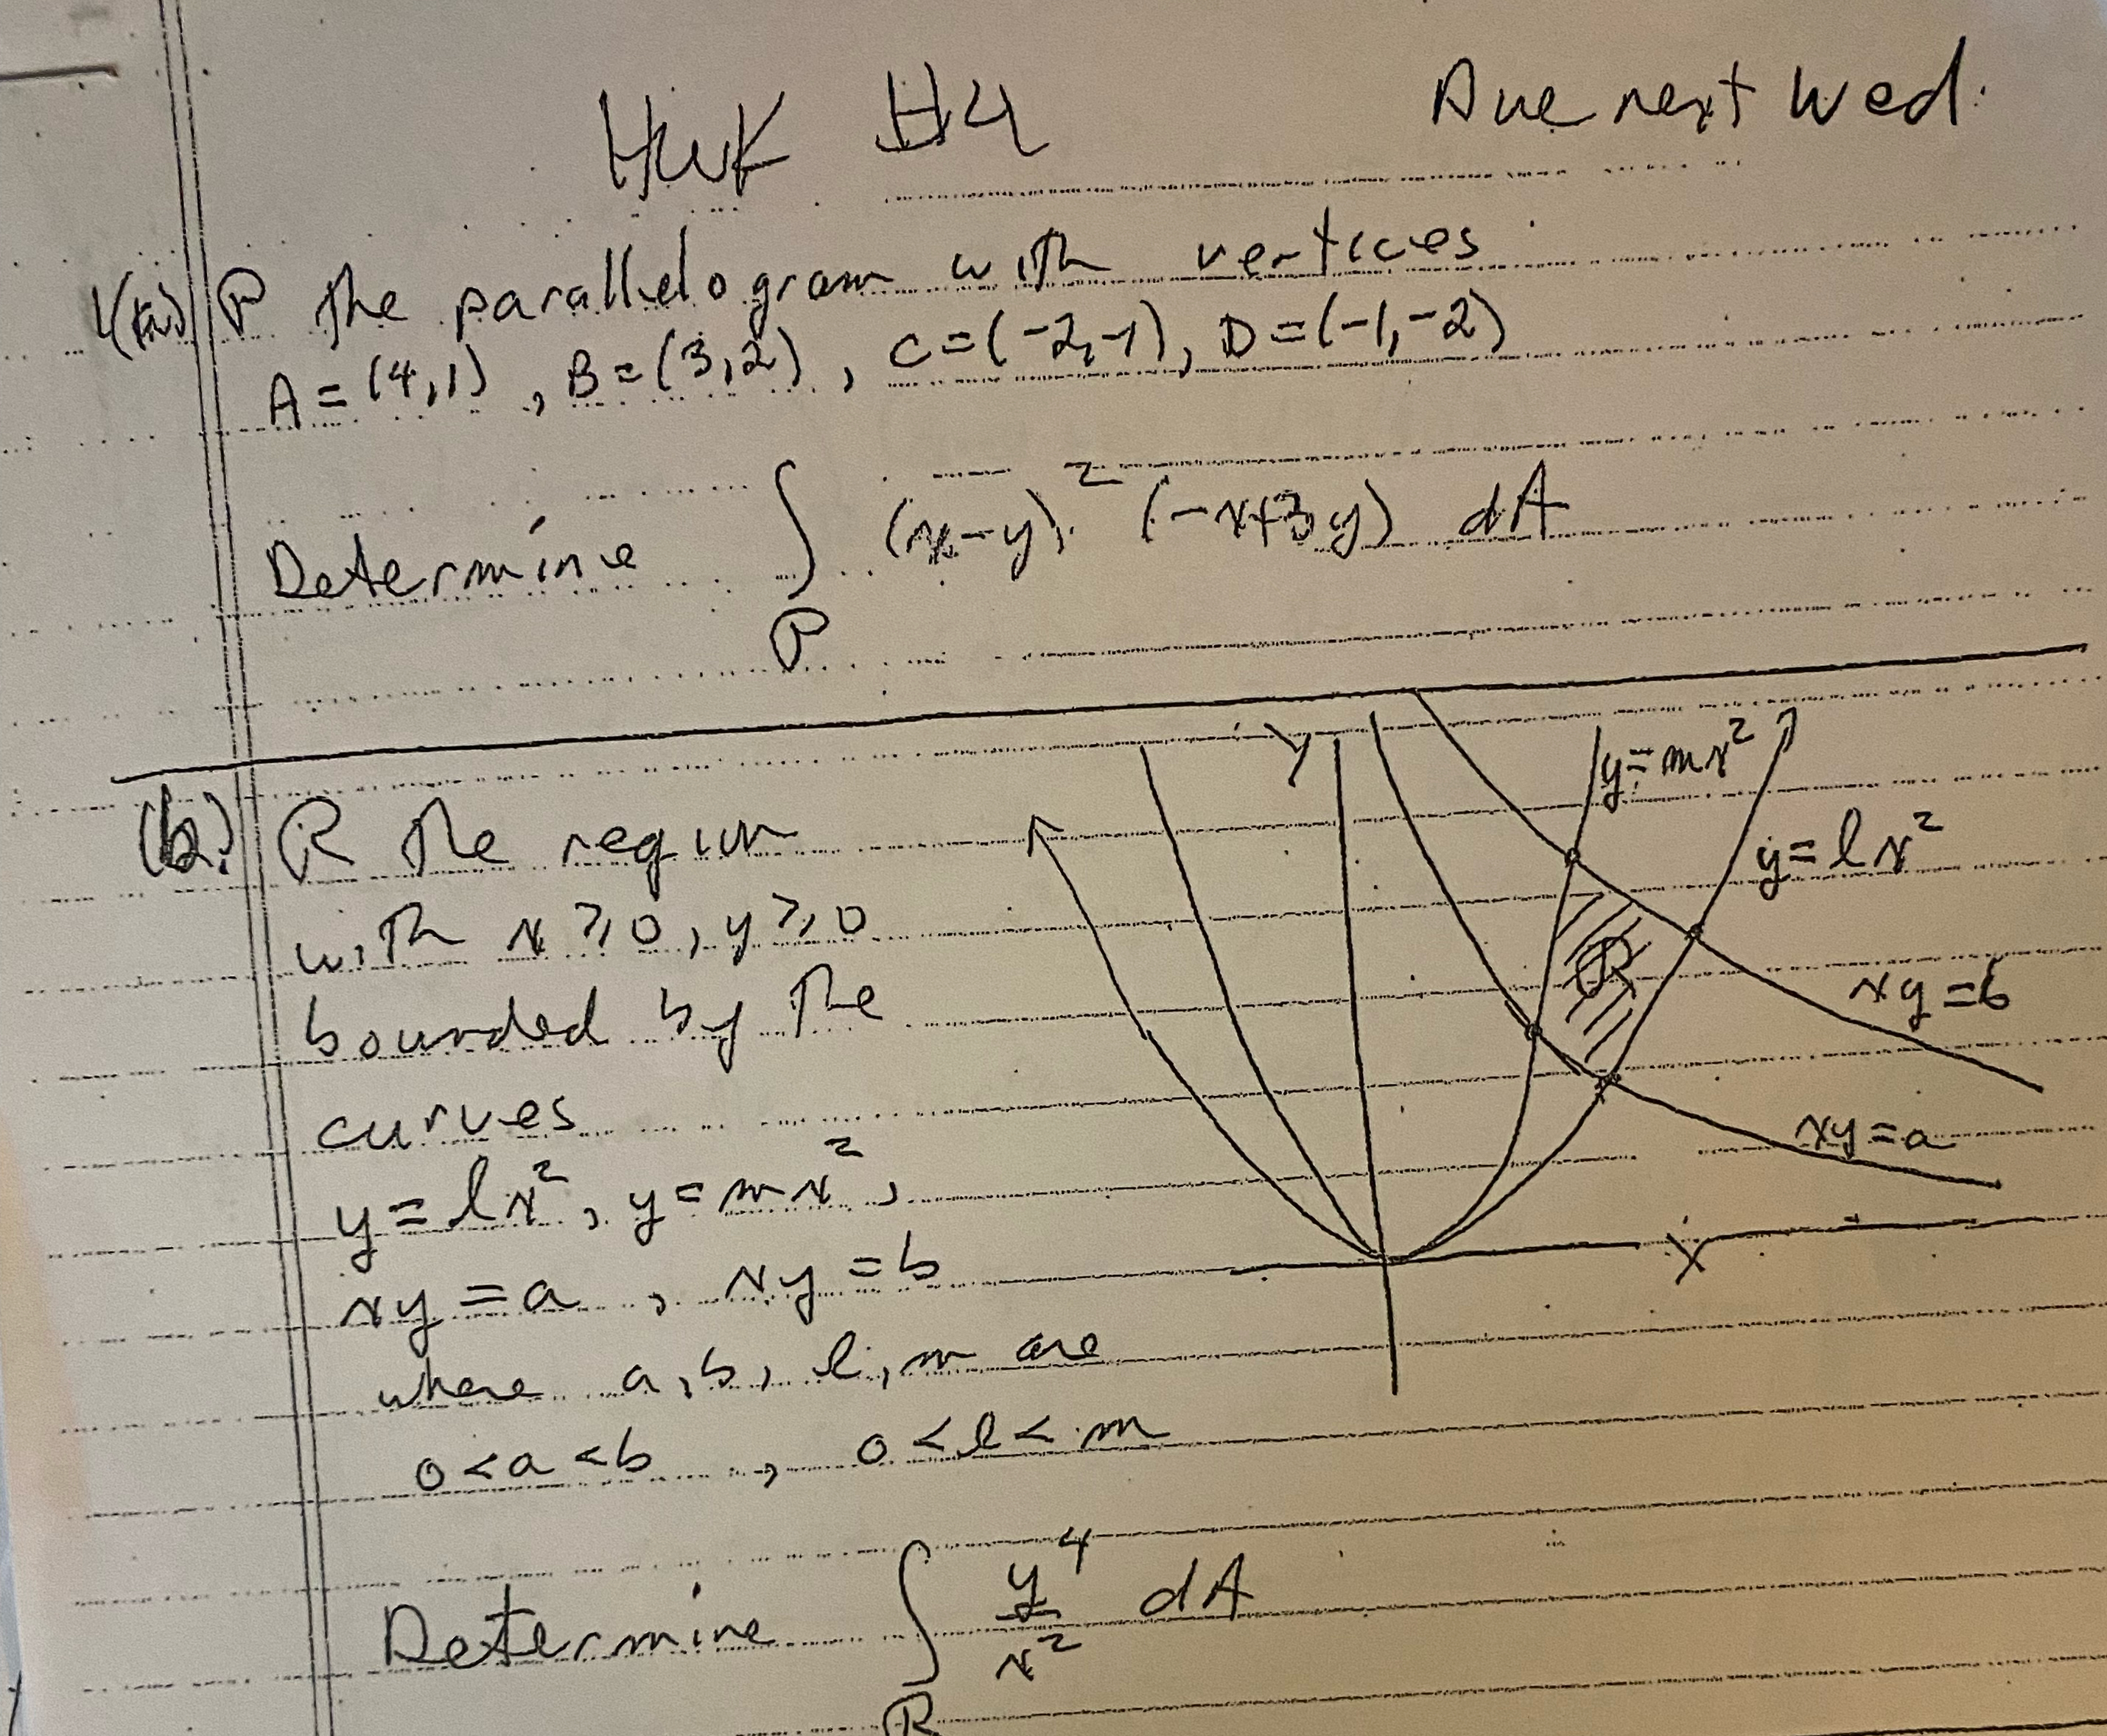 HWK #4 Due next Wed.
1(a) P the parallelogram with vertices
A=(4,1), B=(3,2), C=(-2,-1), D=(-1,-2)
Determine ∫_P (x-y)² (-x+3y) dA
(b) R the region
with x ≥ 0, y ≥ 0
bounded by the
curves
y=lx², y=mx²,
xy=a, xy=b
where a, b, l, m are
0<a<b, 0<l<m
Y
y=mx²
y=lx²
R
xy=b
xy=a
X
Determine ∫_R y⁴/x² dA